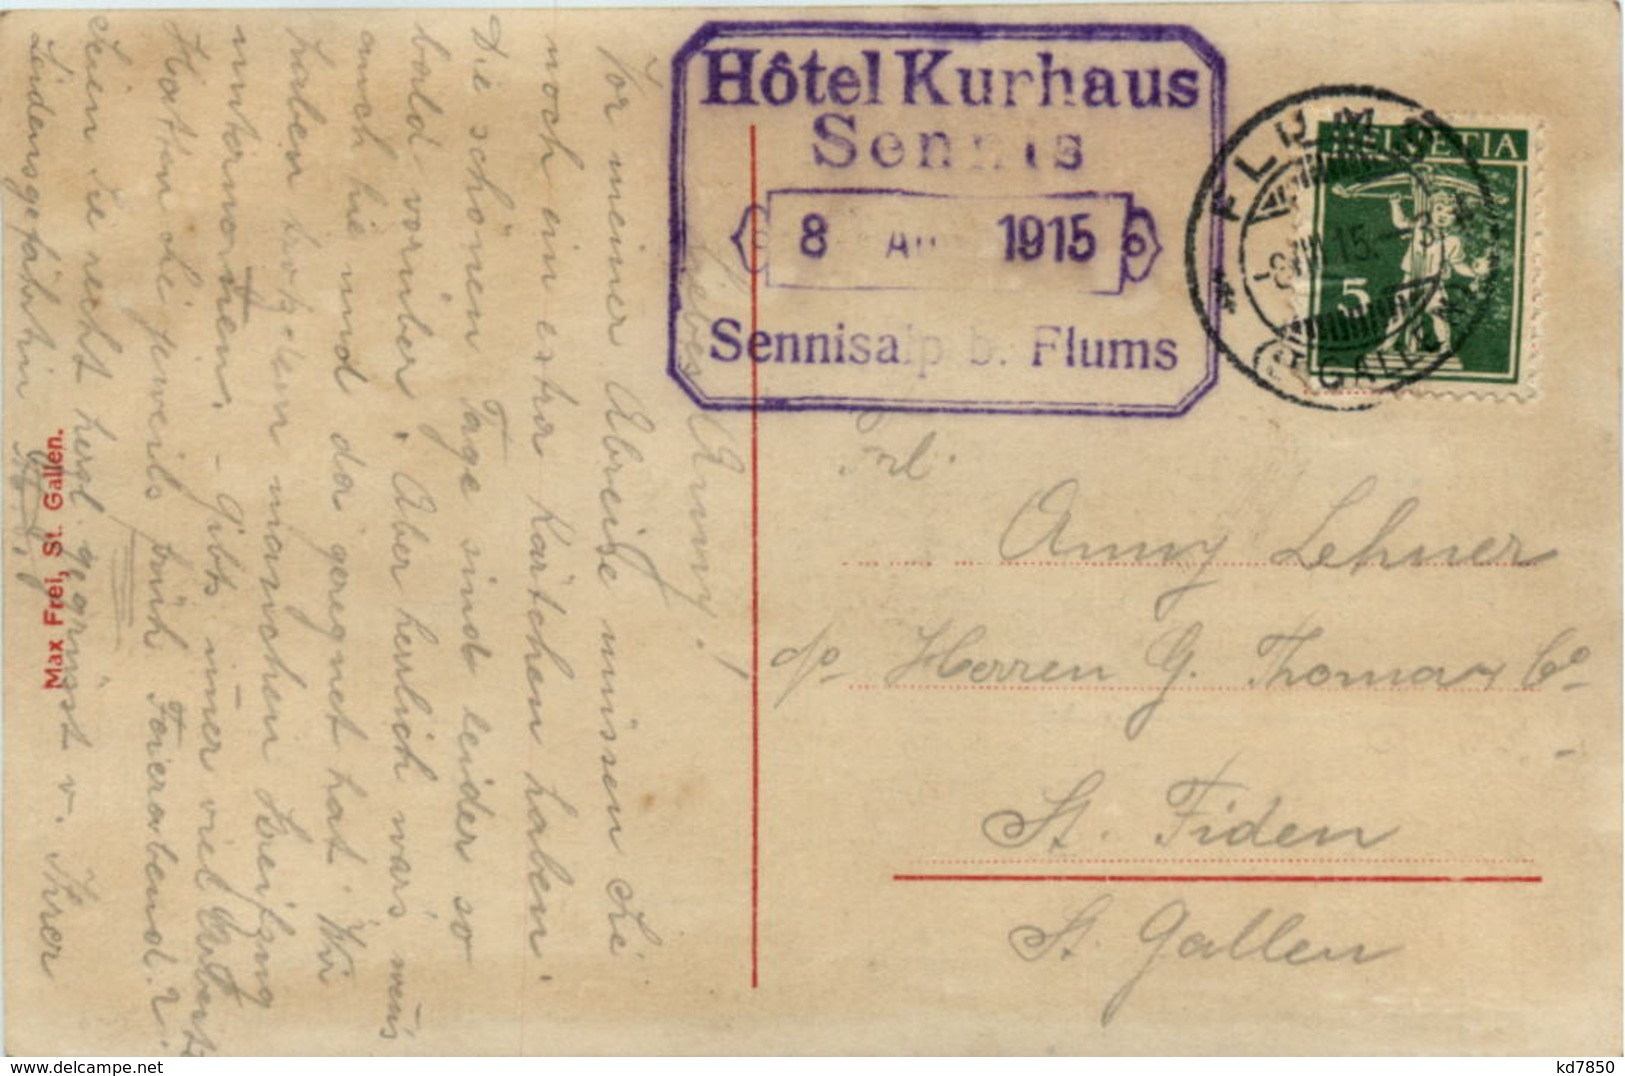 Hôtel Kurhaus
Sennis
8 AU 1915
Sennisalp b. Flums
FLUMS
8.VIII.15.
(ST. GALLEN)
HELVETIA
5
Frl.
Anny Lehner
p/o Herren G. Thoma & Co
St. Fiden
St. Gallen
Liebes Anny!
Vor meiner Abreise müssen Sie
noch ein extra Kärtchen haben.
Die schönen Tage sind leider so
bald vorüber. Aber herrlich war's wen's
auch hie und da geregnet hat. Wir
haben trotzdem manchen Streifzug
unternomen. - Gibts imer viel Arbeit?
Hatten Sie jeweils früh Feierabend?
Seien Sie recht herzl. gegrüsst v. Ihrer
Leidensgefährtin
Max Frei, St. Gallen.
www.delcampe.net
kd7850